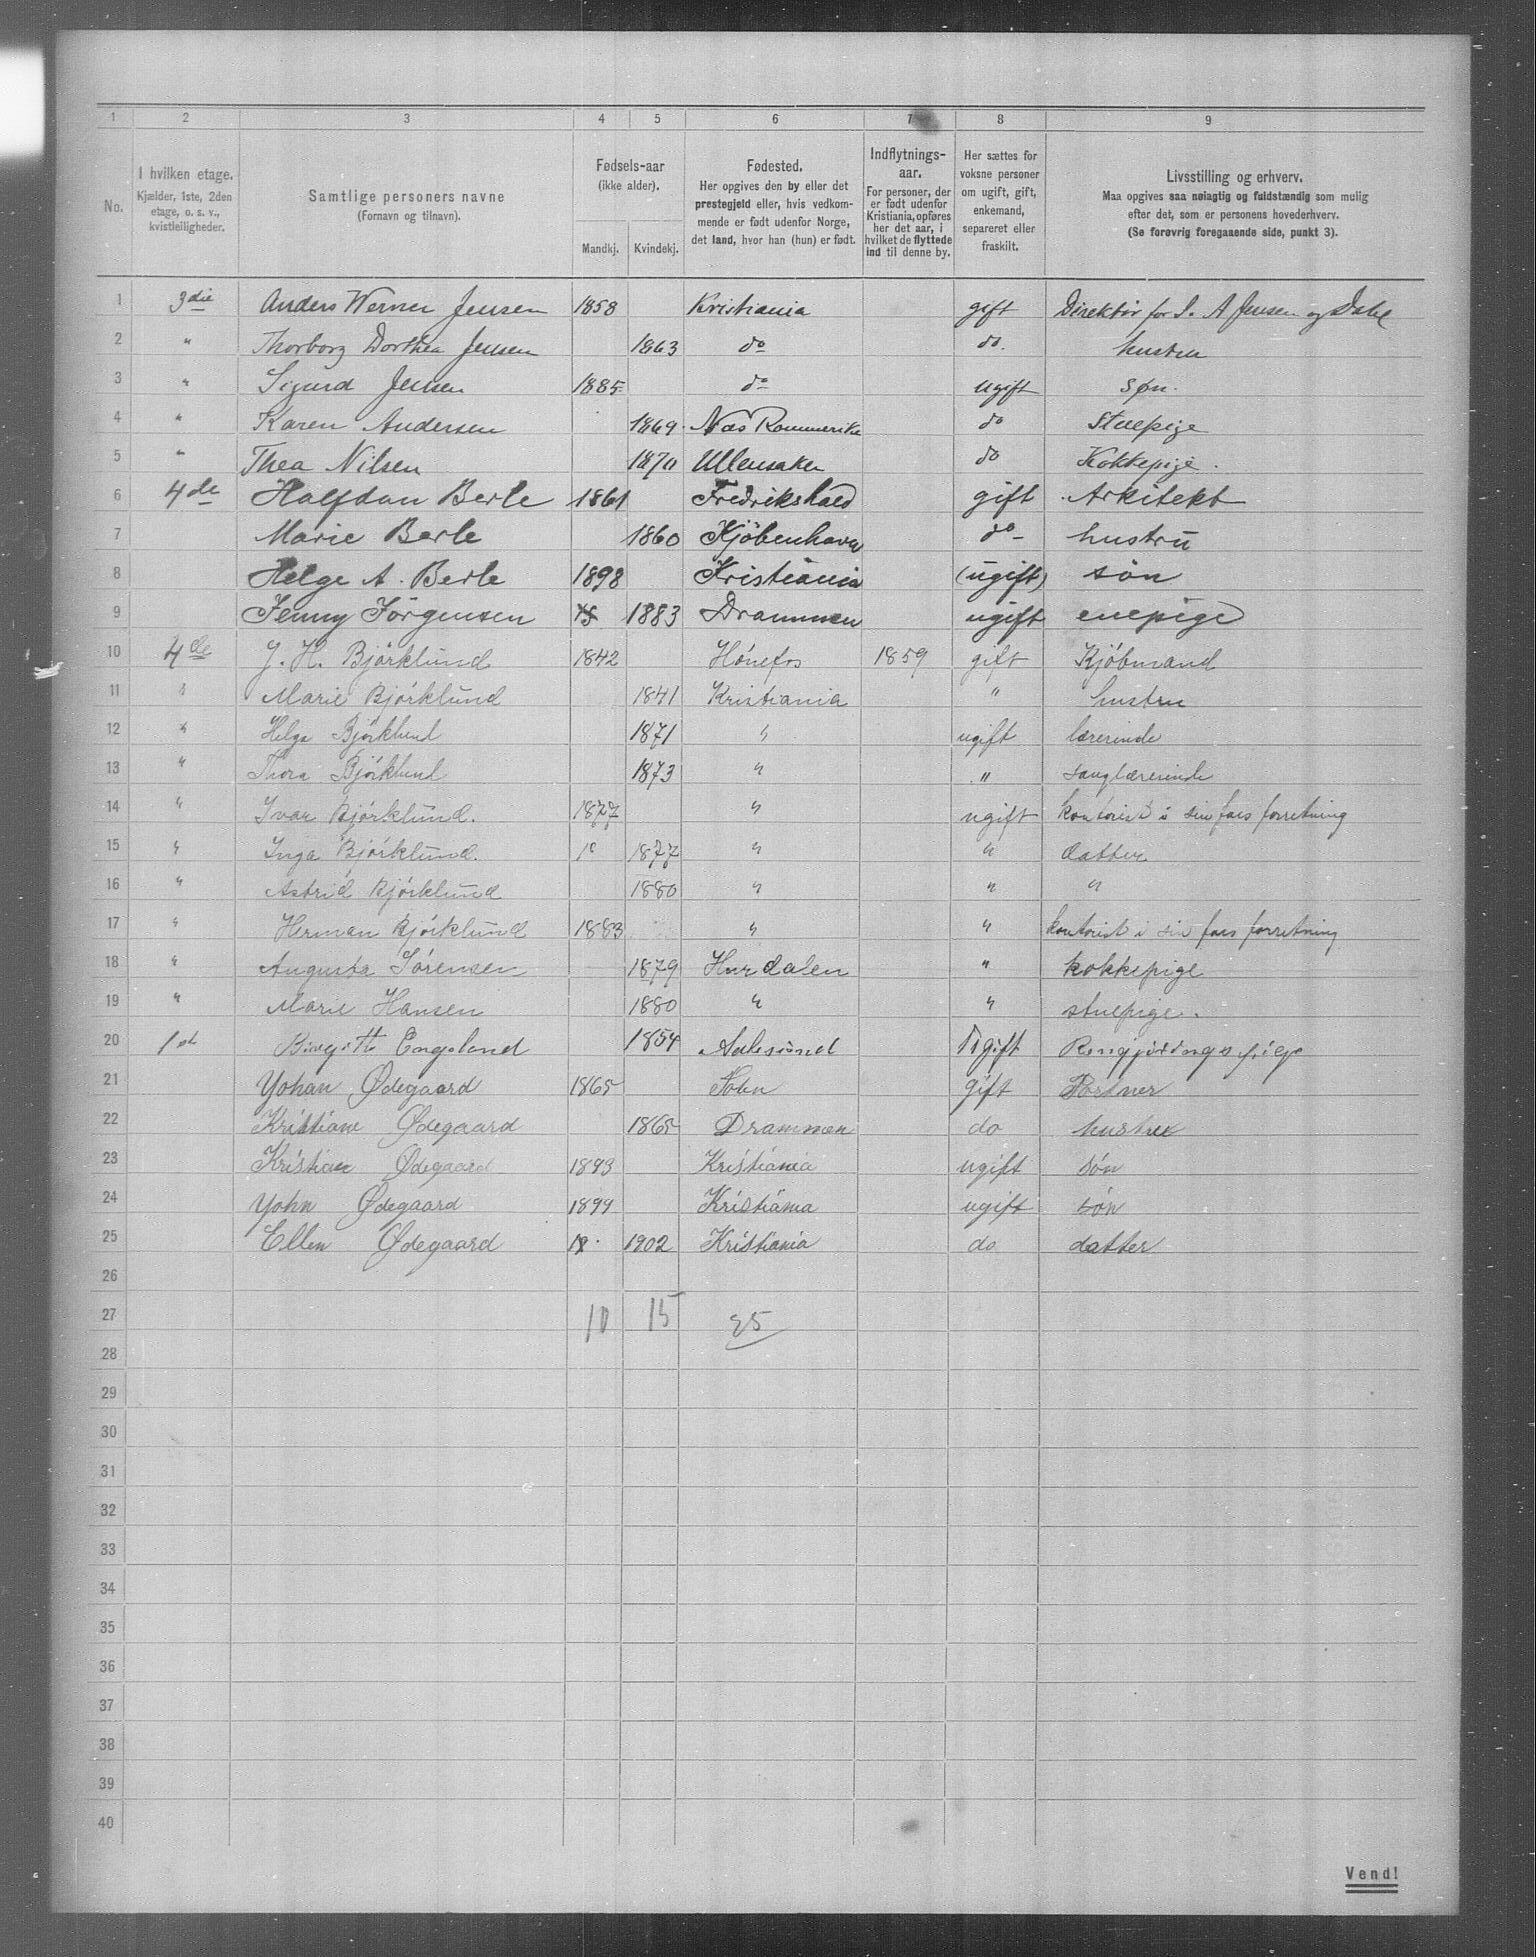 1 2 3 4 5 6 7 8 9
No. I hvilken etage. Kjælder, 1ste, 2den etage, o. s. v., kvistleiligheder. Samtlige personers navne (Fornavn og tilnavn). Fødsels-aar (ikke alder). Mandkj. Kvindekj. Fødested. Her opgives den by eller det prestegjeld eller, hvis vedkommende er født udenfor Norge, det land, hvor han (hun) er født. Indflytnings-aar. For personer, der er født udenfor Kristiania, opføres her det aar, i hvilket de flyttede ind til denne by. Her sættes for voksne personer om ugift, gift, enkemand, separeret eller fraskilt. Livsstilling og erhverv. Maa opgives saa nøiagtig og fuldstændig som mulig efter det, som er personens hovederhverv. (Se forøvrig foregaaende side, punkt 3).
1 3die Anders Werner Jensen 1858 Kristiania gift Direktør for S. A Jensen og Dahl
2 " Thorborg Dorthea Jensen 1863 do do. hustru
3 " Sigurd Jensen 1885 do ugift søn.
4 " Karen Andersen 1869 Næs Rommerike do Stuepige
5 " Thea Nilsen 1870 Ullensaker do Kokkepige.
6 4de Halfdan Berle 1861 Fredrikshald gift Arkitekt
7 Marie Berle 1860 Kjöbenhavn do hustru
8 Helge A. Berle 1898 Kristiania (ugift) sön
9 Jenny Jörgensen 18 1883 Drammen ugift enepige
10 4de J. H. Björklund 1842 Hönefos 1859 gift Kjöbmand
11 " Marie Björklund 1841 Kristiania " hustru
12 " Helga Björklund 1871 " ugift lærerinde
13 " Thora Björklund 1873 " " sanglærerinde
14 " Ivar Björklund. 1877 " ugift kontorist i sin fars forretning
15 " Inga Björklund. 1877 " " datter
16 " Astrid Björklund 1880 " " "
17 " Herman Björklund 1883 " " kontorist i sin fars forretning
18 " Augusta Sörensen 1879 Hurdalen " kokkepige
19 " Marie Hansen 1880 " " stuepige.
20 1st Birgitt Engeland 1854 Aalesund Ugift Rengjöringspige
21 Yohan Ødegaard 1865 gift Portner
22 Kristiane Ødegaard 1865 Drammen do hustru
23 Kristian Ødegaard 1893 Kristiania ugift sön
24 Yohn Ødegaard 1899 Kristiania ugift sön
25 Ellen Ødegaard 18 1902 Kristiania do datter
26
27 10 15 25
28
29
30
31
32
33
34
35
36
37
38
39
40
Vend!